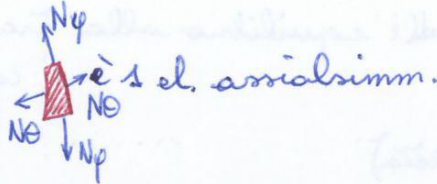 Nφ
è 1 el. assialsimm.
Nθ
Nθ
Nφ